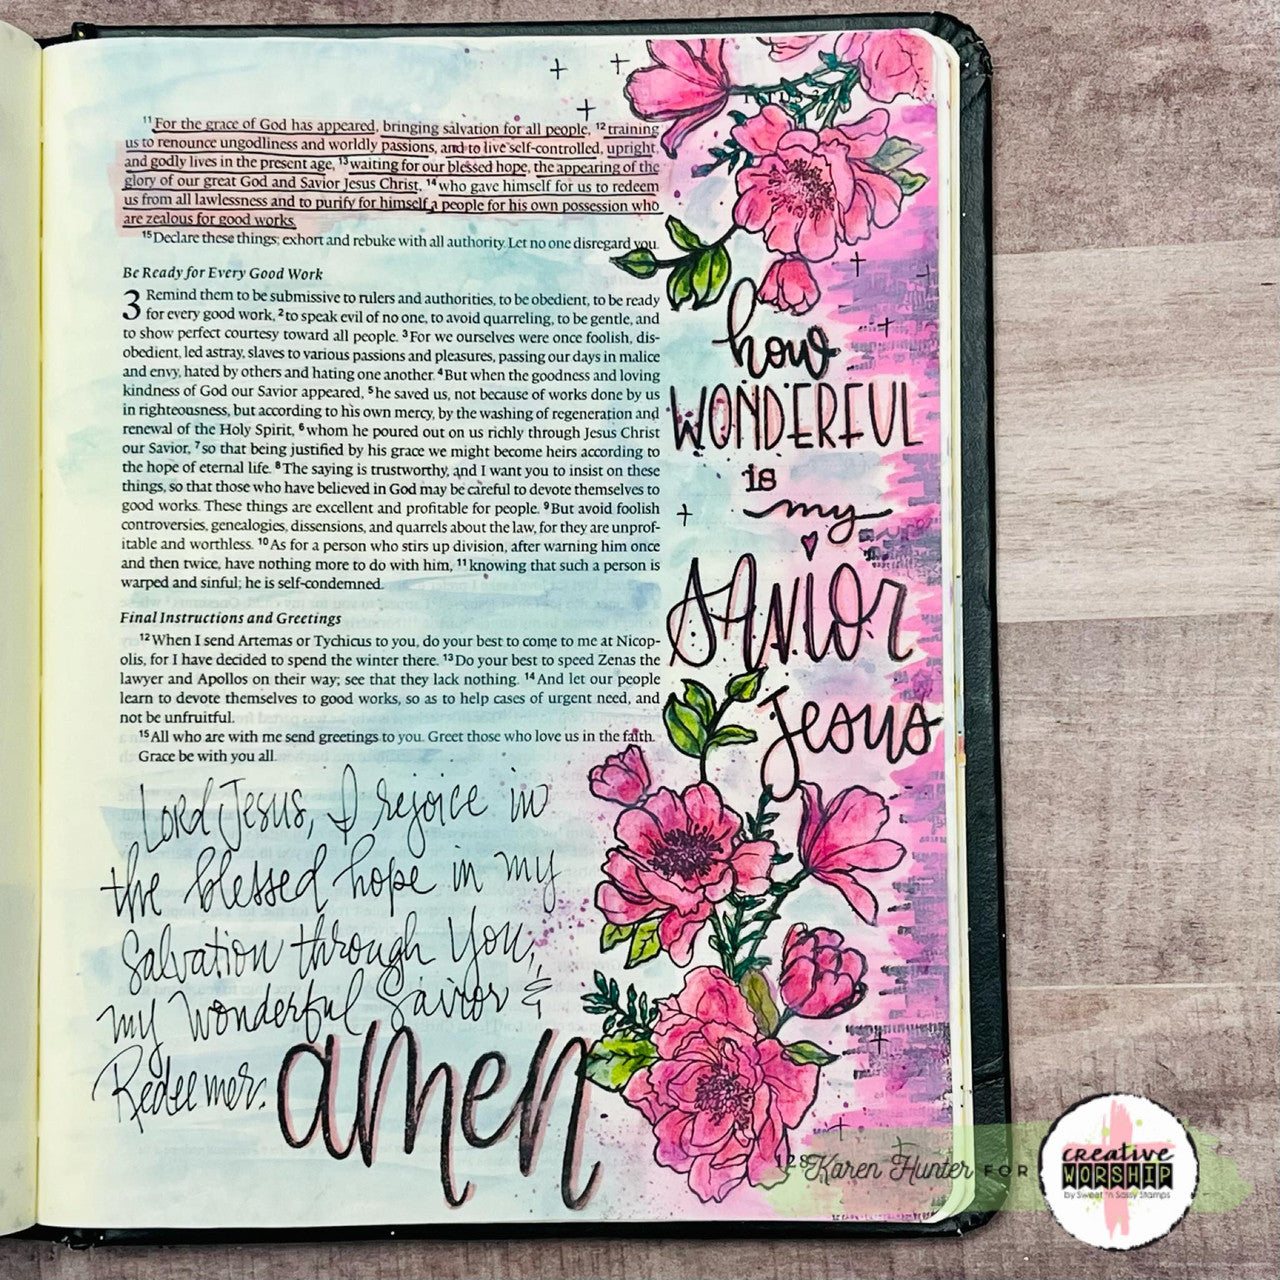 11 For the grace of God has appeared, bringing salvation for all people, 12 training
us to renounce ungodliness and worldly passions, and to live self-controlled, upright,
and godly lives in the present age, 13 waiting for our blessed hope, the appearing of the
glory of our great God and Savior Jesus Christ, 14 who gave himself for us to redeem
us from all lawlessness and to purify for himself a people for his own possession who
are zealous for good works.
15 Declare these things; exhort and rebuke with all authority. Let no one disregard you.
Be Ready for Every Good Work
3 Remind them to be submissive to rulers and authorities, to be obedient, to be ready
for every good work, 2 to speak evil of no one, to avoid quarreling, to be gentle, and
to show perfect courtesy toward all people. 3 For we ourselves were once foolish, dis-
obedient, led astray, slaves to various passions and pleasures, passing our days in malice
and envy, hated by others and hating one another. 4 But when the goodness and loving
kindness of God our Savior appeared, 5 he saved us, not because of works done by us
in righteousness, but according to his own mercy, by the washing of regeneration and
renewal of the Holy Spirit, 6 whom he poured out on us richly through Jesus Christ
our Savior, 7 so that being justified by his grace we might become heirs according to
the hope of eternal life. 8 The saying is trustworthy, and I want you to insist on these
things, so that those who have believed in God may be careful to devote themselves to
good works. These things are excellent and profitable for people. 9 But avoid foolish
controversies, genealogies, dissensions, and quarrels about the law, for they are unprof-
itable and worthless. 10 As for a person who stirs up division, after warning him once
and then twice, have nothing more to do with him, 11 knowing that such a person is
warped and sinful; he is self-condemned.
Final Instructions and Greetings
12 When I send Artemas or Tychicus to you, do your best to come to me at Nicop-
olis, for I have decided to spend the winter there. 13 Do your best to speed Zenas the
lawyer and Apollos on their way; see that they lack nothing. 14 And let our people
learn to devote themselves to good works, so as to help cases of urgent need, and
not be unfruitful.
15 All who are with me send greetings to you. Greet those who love us in the faith.
Grace be with you all.
Lord Jesus, I rejoice in
the blessed hope in my
Salvation through You,
my Wonderful Savior &
Redeemer.
amen
how
WONDERFUL
is
my
SAVIOR
Jesus
Karen Hunter FOR
creative
WORSHIP
by Sweet 'n Sassy Stamps